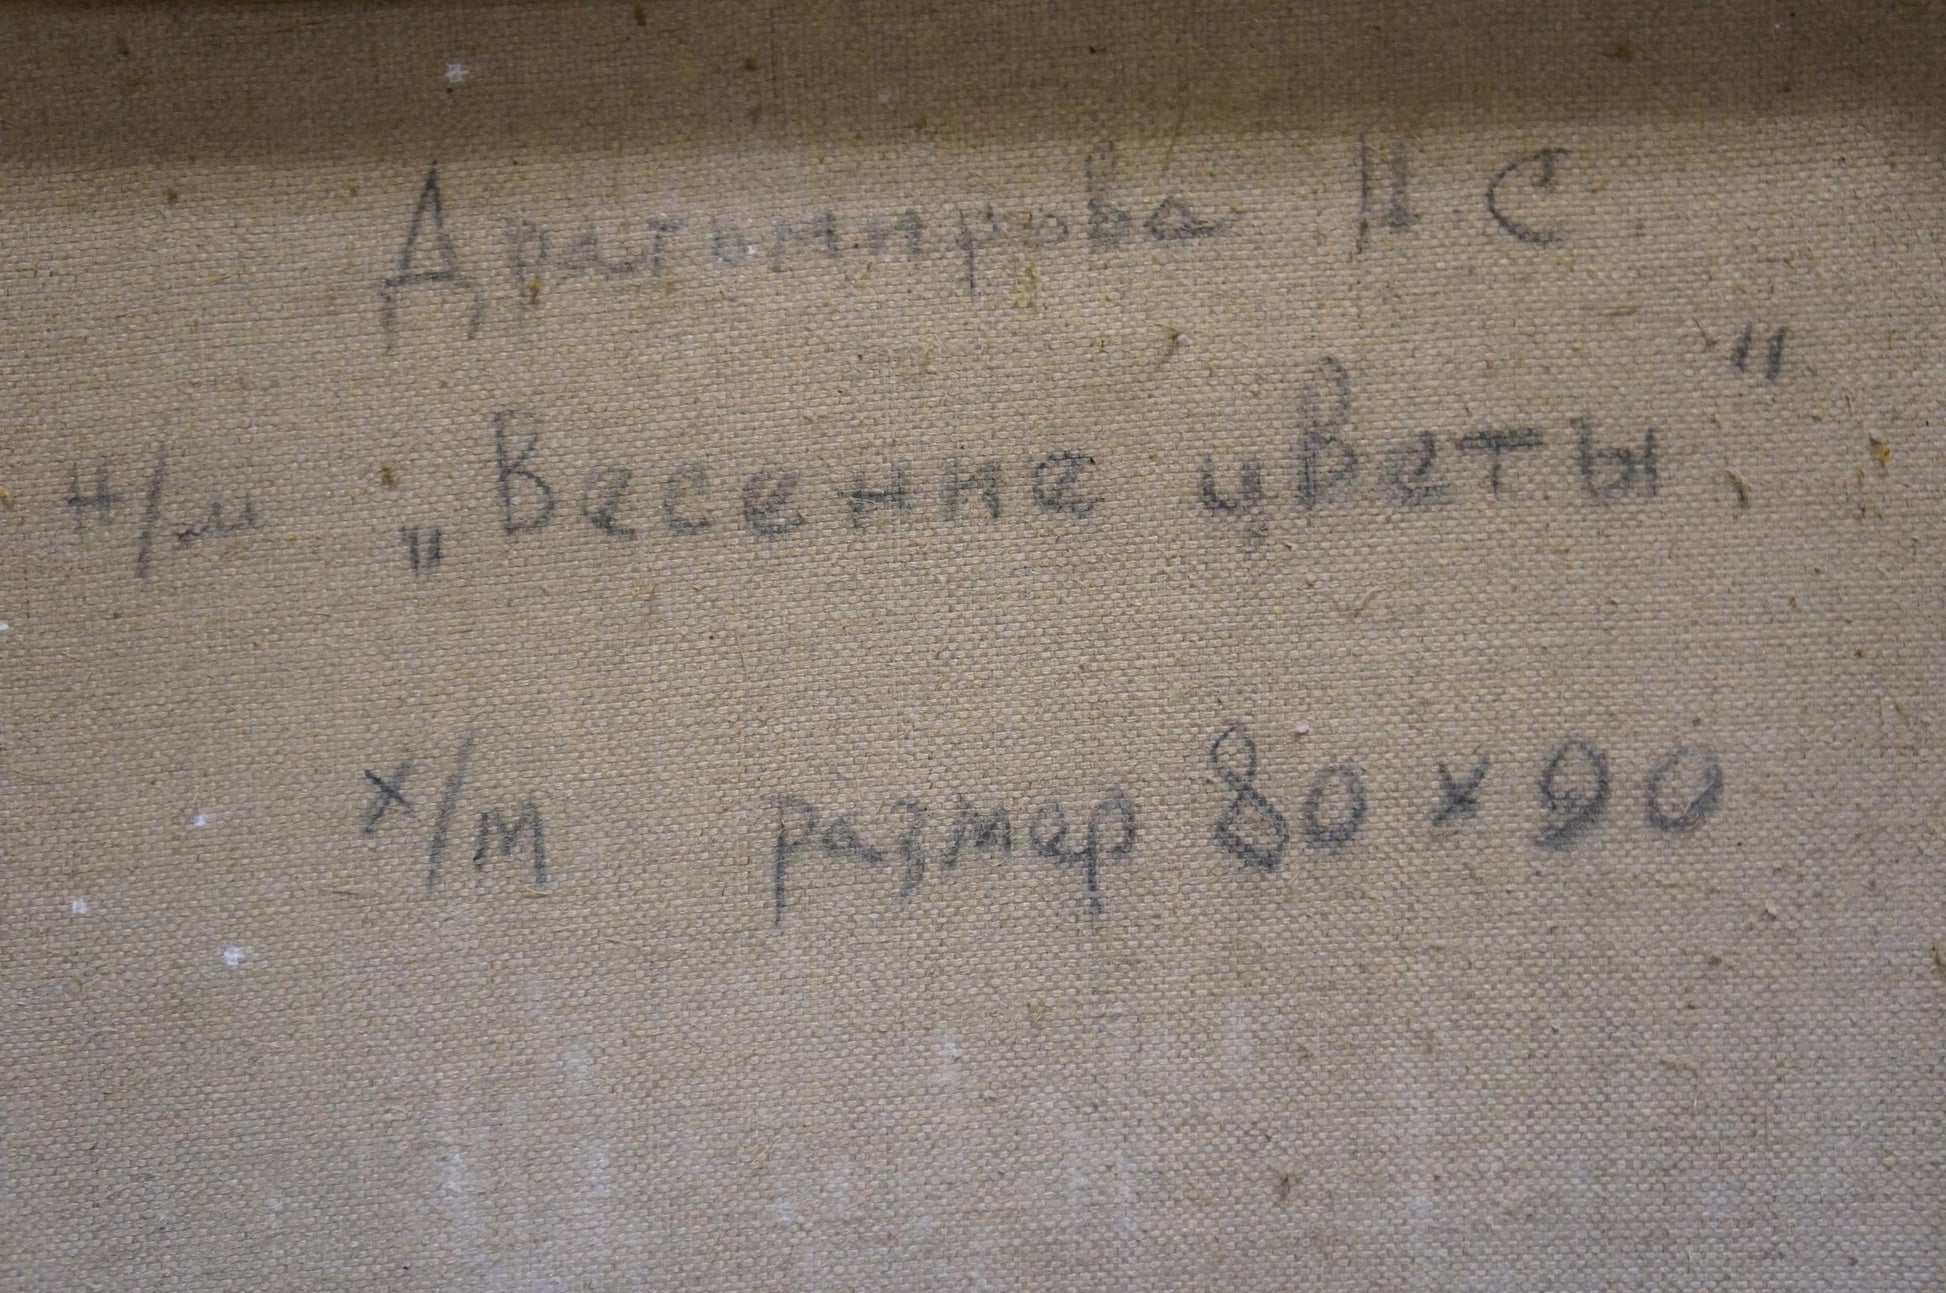 Драгомирова Н. С.
н/м „Весенние цветы"
х/м размер 80 х 90